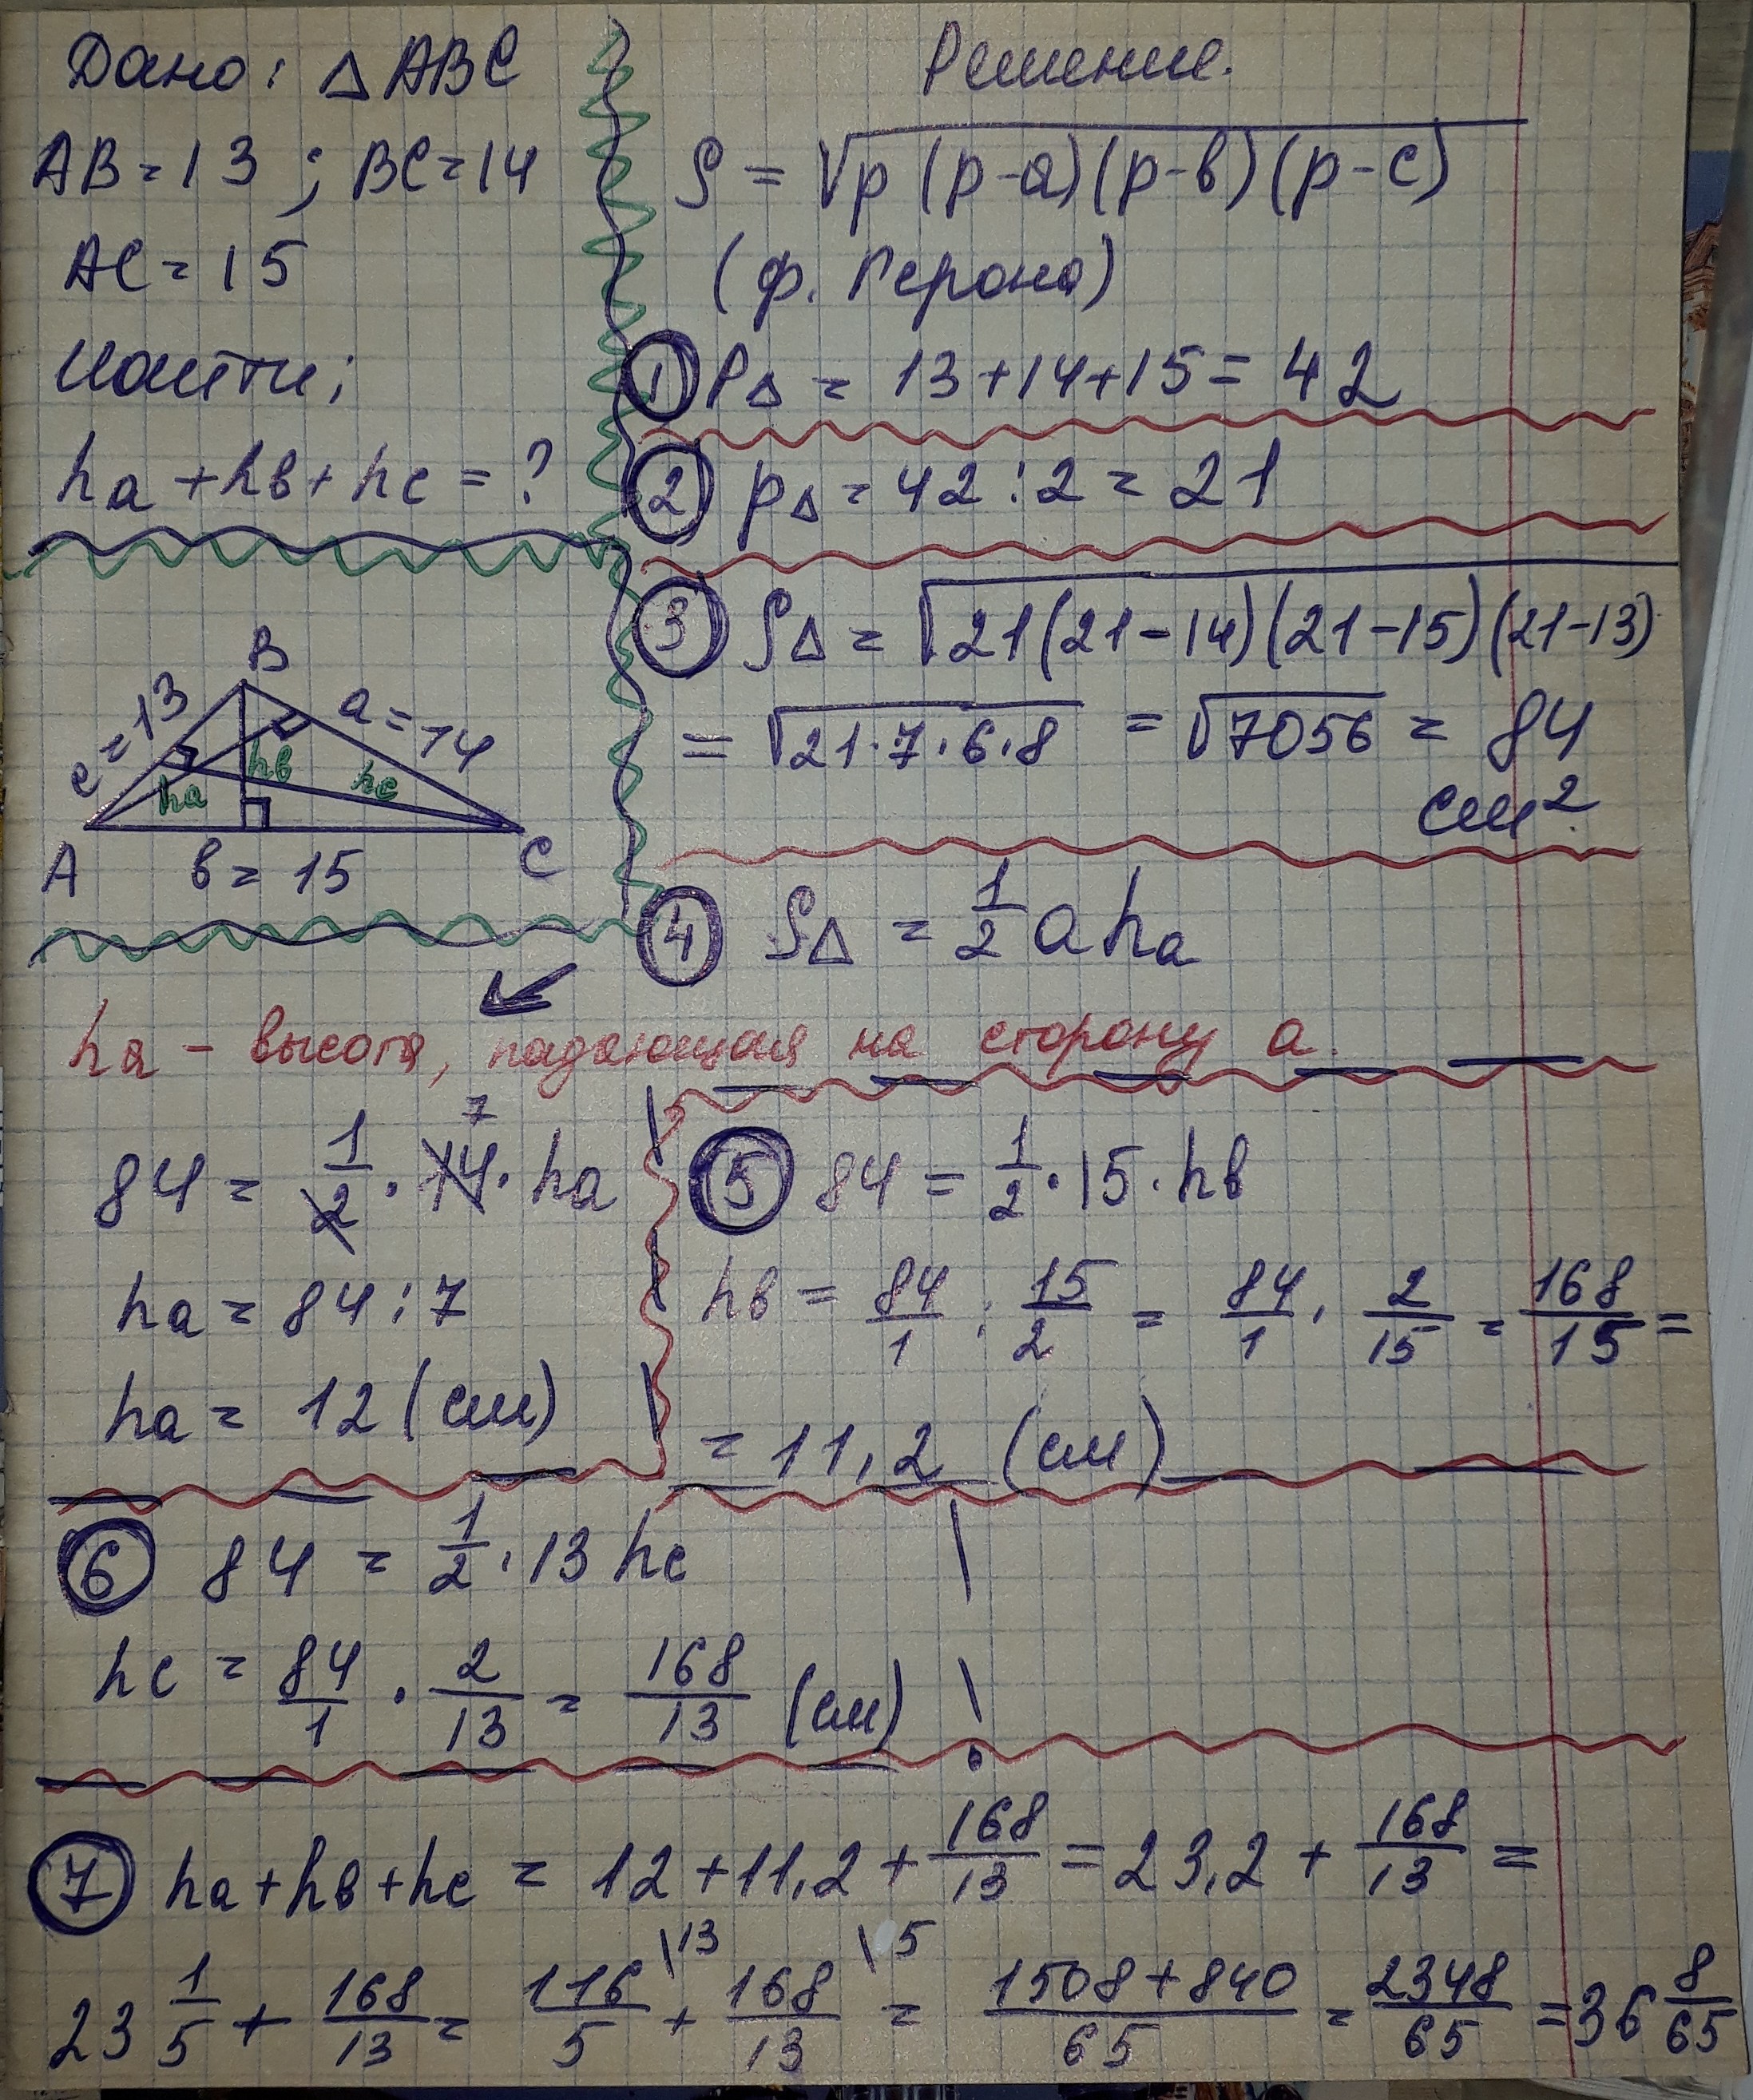 Дано: △ ABC
AB = 13 ; BC = 14
AC = 15
Найти:
ha + hb + hc = ?
B
c = 13
a = 14
ha
hb
hc
A
b = 15
C
Решение.
S = √p (p-a)(p-b)(p-c)
(ф. Герона)
① P△ = 13+14+15 = 42
② p△ = 42 : 2 = 21
③ S△ = √21(21-14)(21-15)(21-13)
= √21·7·6·8 = √7056 = 84
см²
④ S△ = 1/2 a ha
ha - высота, падающая на сторону a.
84 = 1/2 · 14 · ha
7
ha = 84 : 7
ha = 12 (см)
⑤ 84 = 1/2 · 15 · hb
hb = 84/1 : 15/2 = 84/1 · 2/15 = 168/15 =
= 11,2 (см)
⑥ 84 = 1/2 · 13 hc
hc = 84/1 · 2/13 = 168/13 (см)
⑦ ha + hb + hc = 12 + 11,2 + 168/13 = 23,2 + 168/13 =
23 1/5 + 168/13 = 116/5 \13 + 168/13 \5 = 1508+840/65 = 2348/65 = 36 8/65